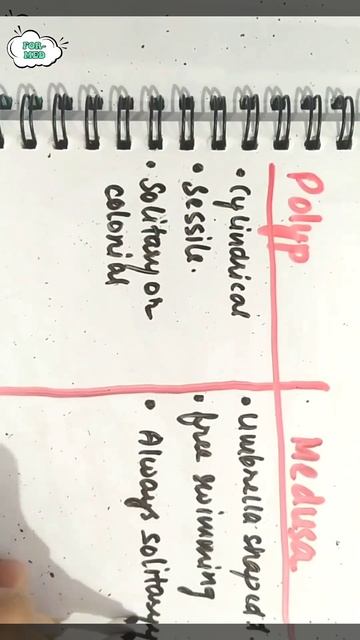 FOR-MED
Polyp
• Cylindrical
• Sessile.
• Solitary or
colonial
Medusa
• Umbrella shaped
• free swimming
• Always solitary